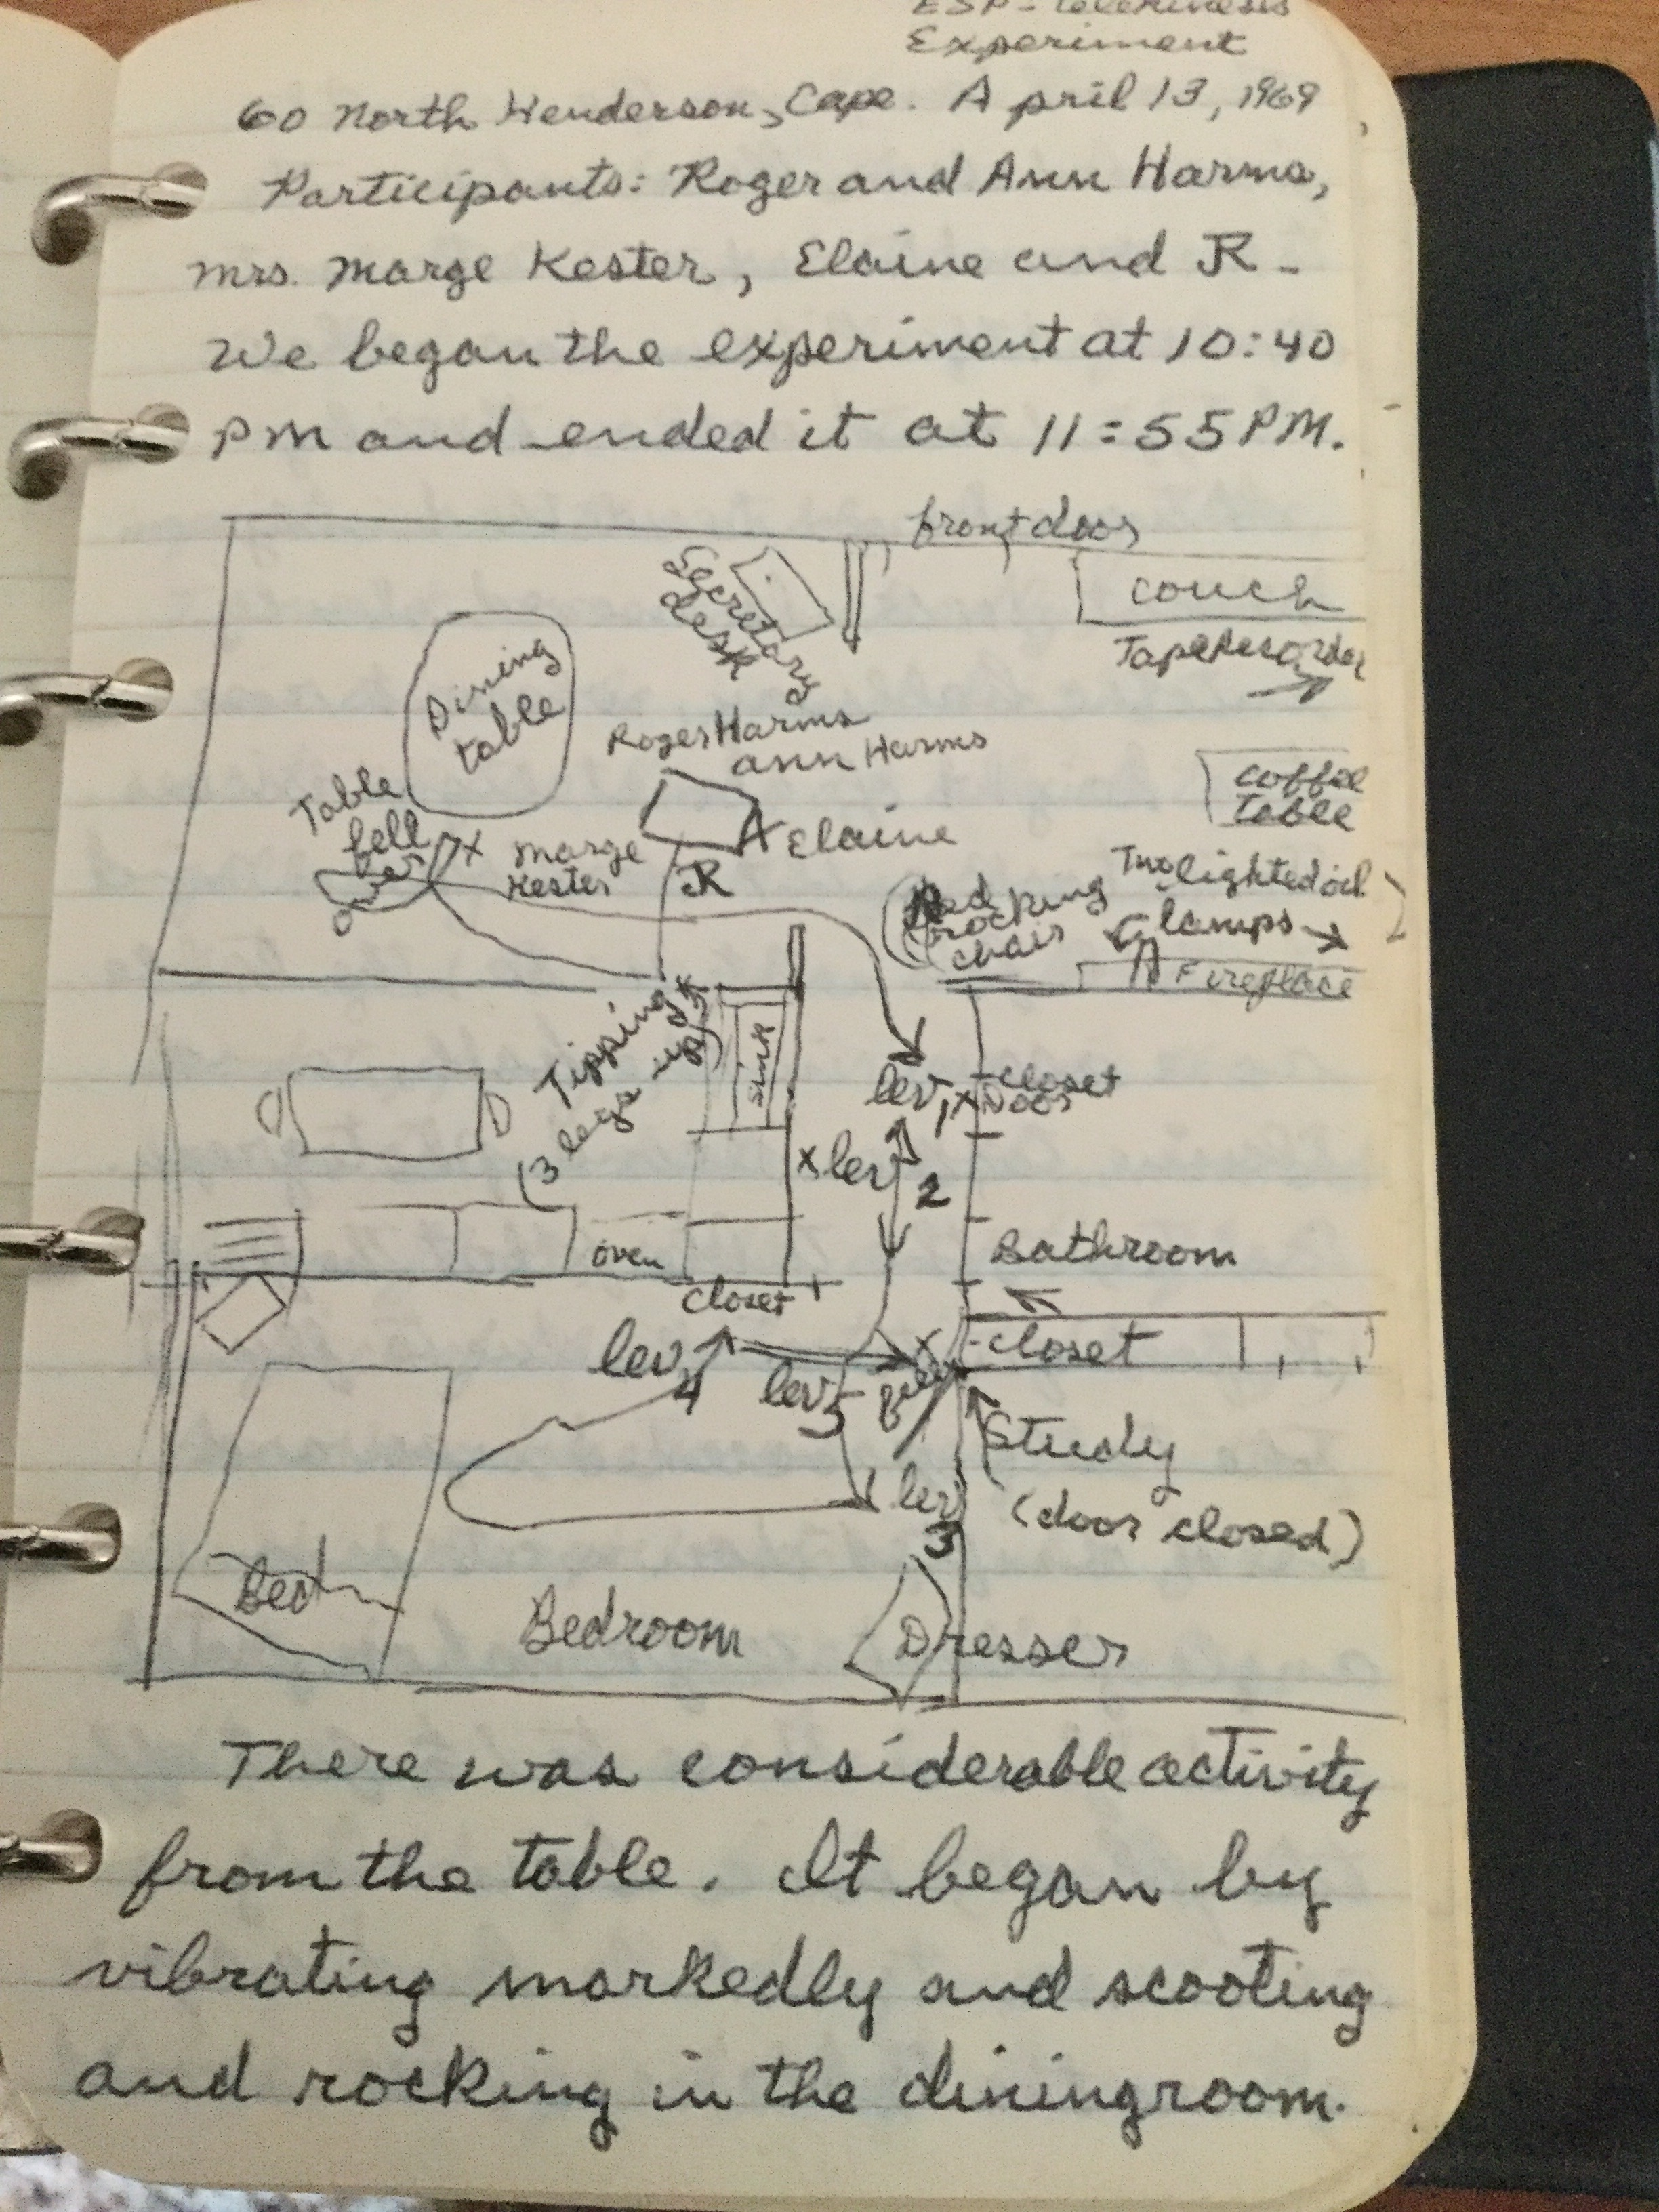 ESP-telekinesis
Experiment
60 North Henderson, Cape. April 13, 1969
Participants: Roger and Ann Harms,
Mrs. Marge Kester, Elaine and JR-
We began the experiment at 10:40
PM and ended it at 11:55 PM.
front door
Secretary
desk
couch
Tape Recorder
Dining
table
Roger Harms
Ann Harms
coffee
table
Table
fell
over
x Marge
Kester
JR
Elaine
Red
rocking
chair
Two lighted oil
lamps
Fireplace
Tipping
(3 legs up)
sink
lev 1 x
closet
Door
x lev 2
oven
Bathroom
closet
closet
lev 4
lev 5
x
Study
(door closed)
lev 3
Bed
Bedroom
Dresser
There was considerable activity
from the table. It began by
vibrating markedly and scooting
and rocking in the diningroom.